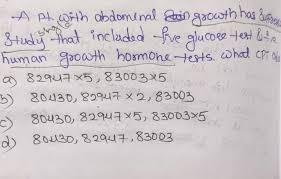 A pt. with abdominal growth has
Study that included five glucose test &
human growth hormone tests. what CPT
a) 82947x5, 83003x5
b) 80430, 82947 x 2, 83003
c) 80430, 82947x5, 83003x5
d) 80430, 82947, 83003